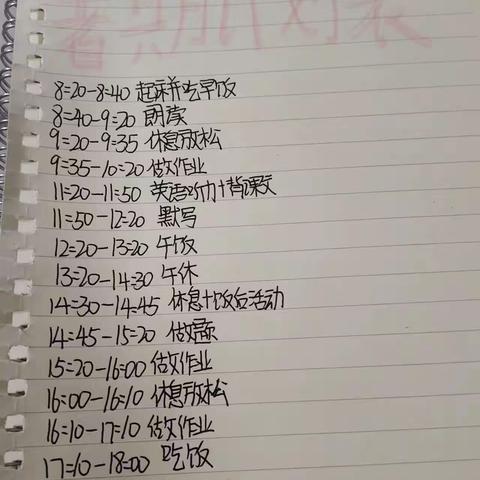 暑期计划表
8=20-8=40 起床并吃早饭
8=40-9=20 朗读
9=20-9=35 休息放松
9=35-10=20 做作业
11=20-11=50 英语听力+背课文
11=50-12=20 默写
12=20-13=20 午饭
13=20-14=30 午休
14=30-14=45 休息+饭后活动
14=45-15=20 做题
15=20-16=00 做作业
16=00-16=10 休息放松
16=10-17=10 做作业
17=10-18=00 吃饭